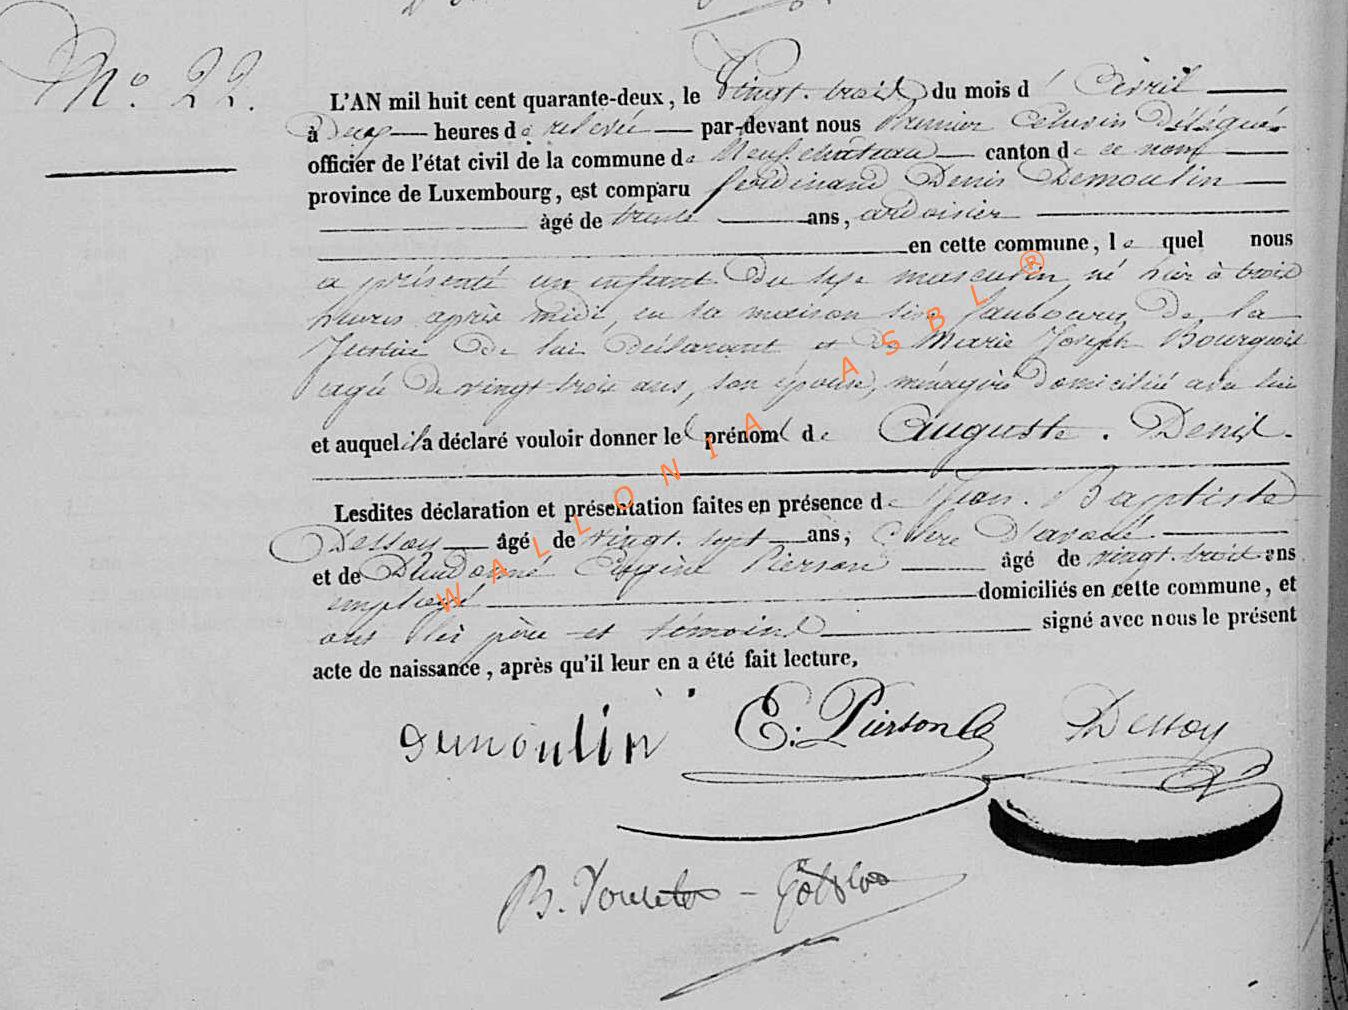 N° 22.
L'AN mil huit cent quarante-deux, le Vingt-trois du mois d'Avril
à Deux heures de relevée par-devant nous Premier Echevin Délégué
officier de l'état civil de la commune de Neufchâteau canton de ce nom
province de Luxembourg, est comparu ferdinand Denis Demoulin
âgé de trente ans, ardoisier
en cette commune, lequel nous
a présenté un enfant du sexe masculin, né hier à trois
heures après midi, en sa maison sise faubourg de la
Justice de lui Déclarant et de Marie Joseph Bourgeois
agée de vingt trois ans, son épouse, ménagère domiciliée avec lui
et auquel il a déclaré vouloir donner les prénoms de Auguste. Denis.
Lesdites déclaration et présentation faites en présence de Jean-Baptiste
Dessoy âgé de vingt-sept ans, Clerc D'avoué
et de Dieudonné Eugène Pierson âgé de vingt-trois ans
employé domiciliés en cette commune, et
ont les père et témoins signé avec nous le présent
acte de naissance, après qu'il leur en a été fait lecture,
Demoulin E. Pierson Dessoy
WALLONIA ASBL ®